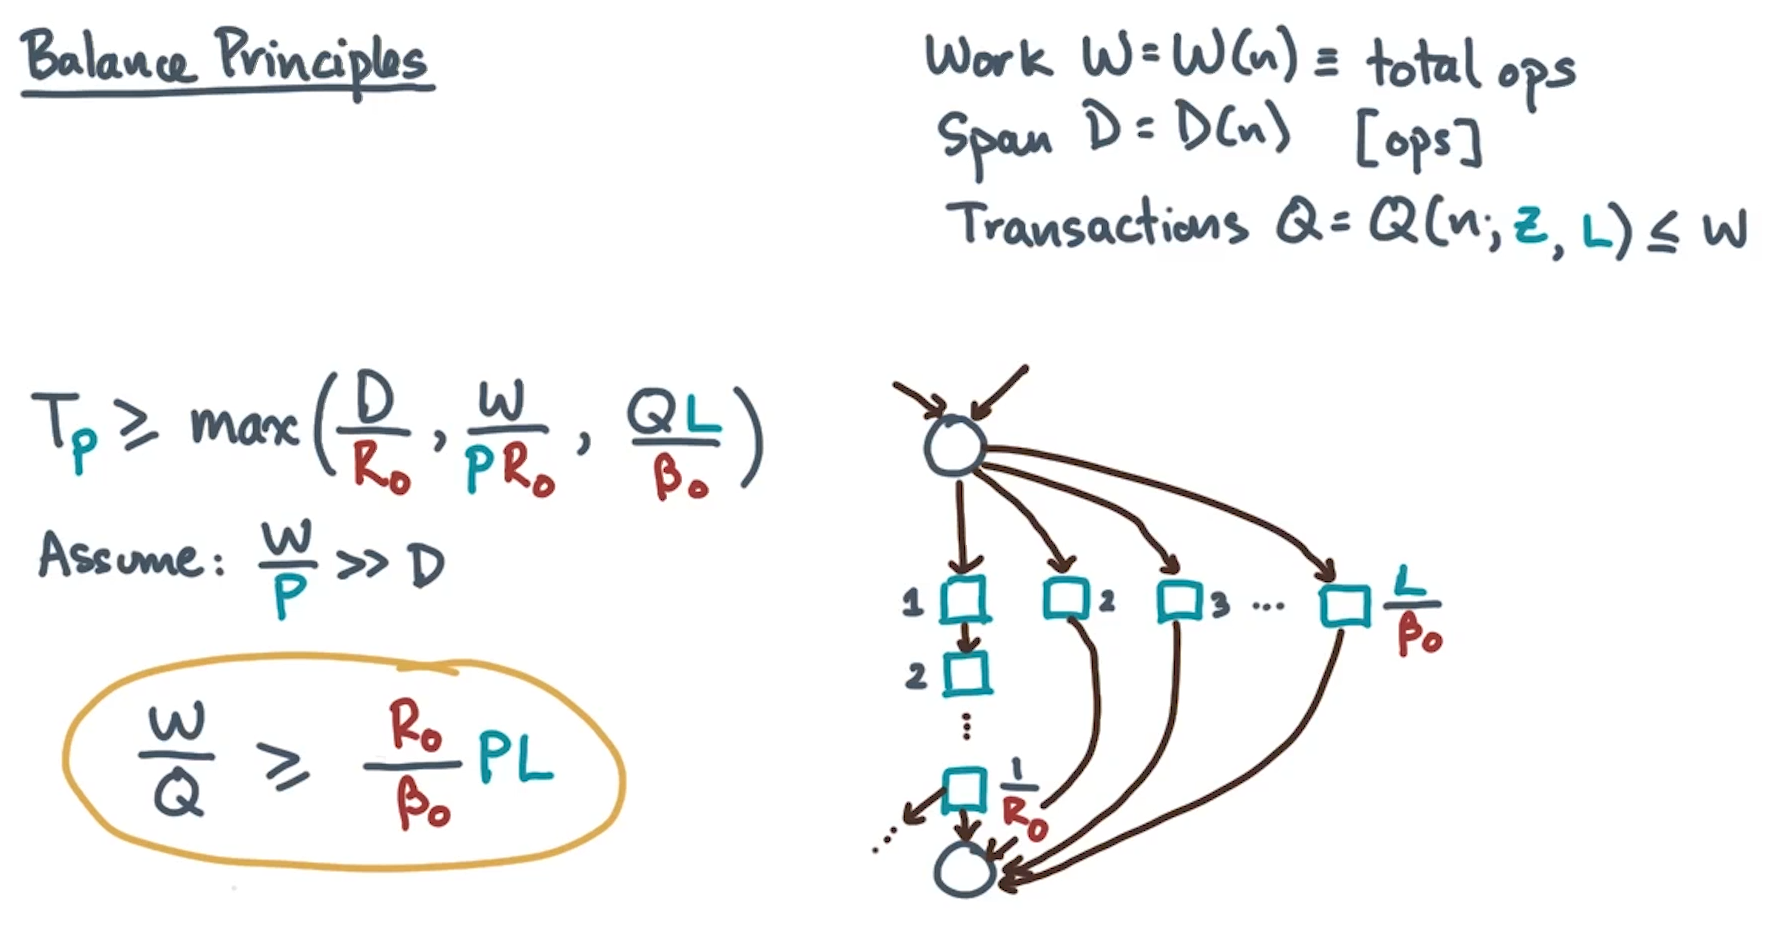 Balance Principles
Work W = W(n) ≡ total ops
Span D = D(n) [ops]
Transactions Q = Q(n; Z, L) ≤ W
T_P ≥ max(D/R₀, W/(PR₀), QL/β₀)
Assume: W/P >> D
W/Q ≥ R₀/β₀ PL
1 2 3 ... L/β₀
2
⋮
1/R₀